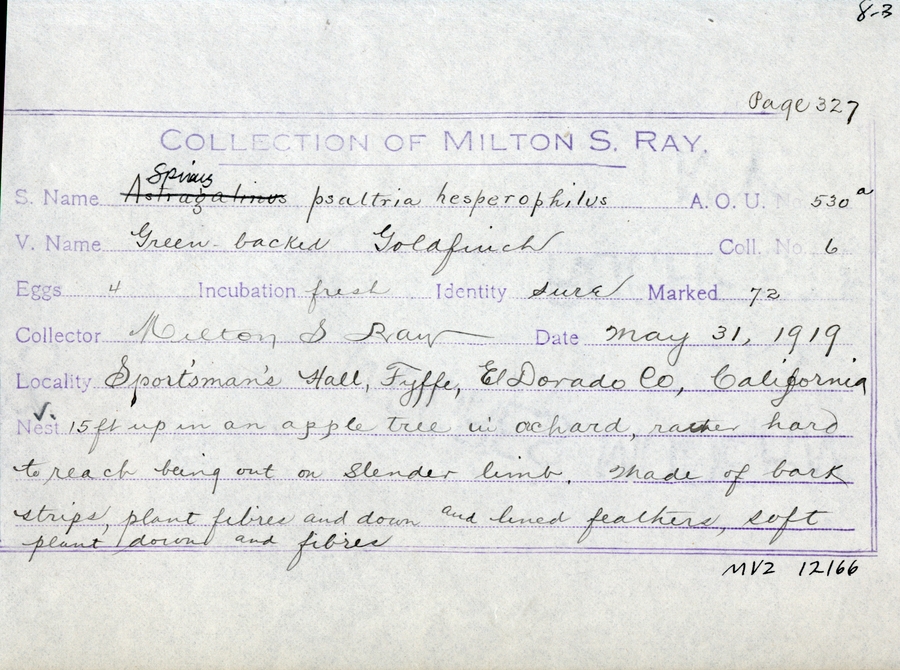 8-3
Page 327
COLLECTION OF MILTON S. RAY.
Spinus
S. Name Astragalinus psaltria hesperophilus A. O. U. No. 530a
V. Name Green-backed Goldfinch Coll. No. 6
Eggs 4 Incubation fresh Identity sure Marked 72
Collector Milton S Ray Date May 31, 1919
Locality Sportsman's Hall, Fyffe, El Dorado Co, California
Nest 15 ft up in an apple tree in ochard, rather hard
to reach being out on slender limb. Made of bark
strips, plant fibres and down and lined feathers, soft
plant down and fibres
MVZ 12166